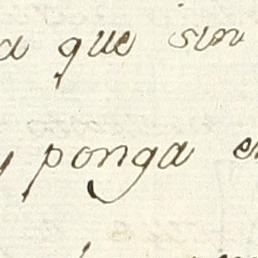 a que sin
y ponga e